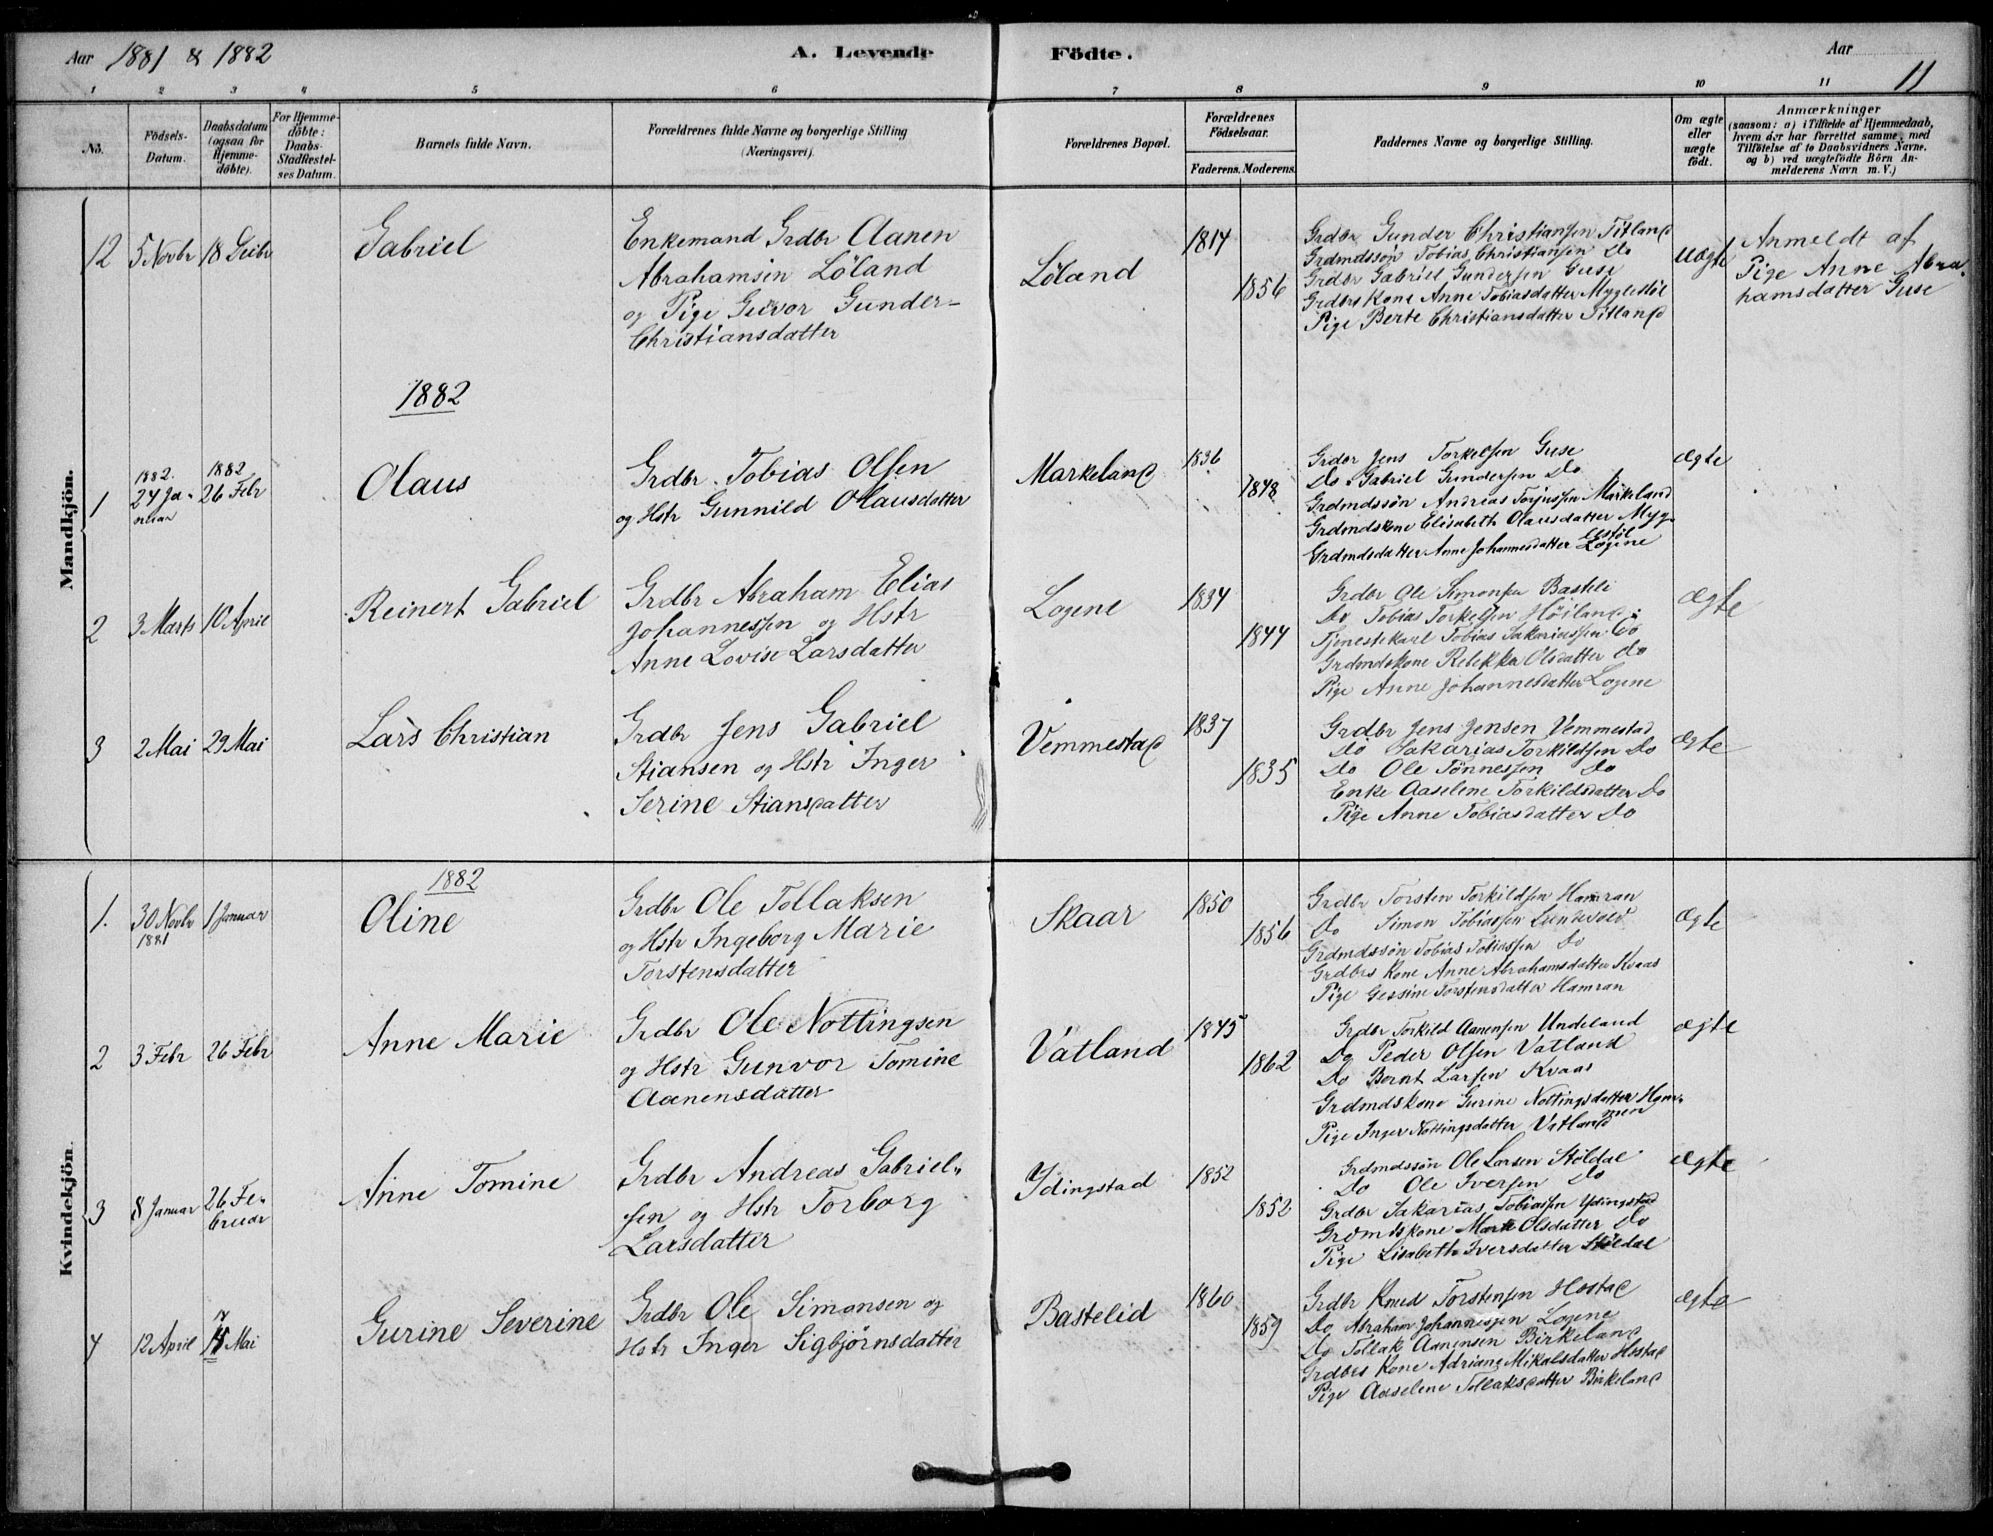 Aar 1881 & 1882
A. Levende
Födte.
Aar
11
1 2 3 4 5 6 7 8 9 10 11
No.
Födsels-Datum.
Daabsdatum (ogsaa for Hjemmedöbte).
For Hjemmedöbte: Daabs-Stadfæstelses Datum.
Barnets fulde Navn.
Forældrenes fulde Navne og borgerlige Stilling (Næringsvei).
Forældrenes Bopæl.
Forældrenes Födselsaar.
Faderens. Moderens.
Faddernes Navne og borgerlige Stilling.
Om ægte eller uægte födt.
Anmærkninger
(saasom: a) i Tilfælde af Hjemmedaab,
hvem der har forrettet samme, med
Tilföielse af to Daabsvidners Navne.
og b) ved uægtefödte Börn An-
melderens Navn m. V.)
Mandkjön.
12 5 Novbr 18 Decbr
Gabriel
Enkemand Grdbr Aanen
Abrahamsen Löland
og Pige Guvor Gunder-
Christiansdatter
Löland
1814
1856
Grdbr Gunder Christiansen Titland
Grdmdssön Tobias Christiansen Do
Grdbr Gabriel Gundersen Guse
Grdbrs Kone Anne Tobiasdatter Myglestöl
Pige Berte Christiansdatter Titland
Uægte
Anmeldt af
Pige Anne Abra-
hamsdatter Guse
1882
1 1882. 24 Ja-
nuar
1882
26 Febr
Olaus
Grdbr. Tobias Olsen
og Hstr Gunnild Olausdatter
Markeland
1836
1848
Grdbr Jens Torkelsen Guse
Do Gabriel Gundersen Do
Grdmdssön Andreas Torjussen Markeland
Grdmdskone Elisabeth Olausdatter Myg-
lestöl
Grdmdsdatter Anne Johannesdatter Logene
Ægte
2 3 Marts 10 April
Reinert Gabriel
Grdbr Abraham Elias
Johannessen og Hstr
Anne Lovise Larsdatter
Logene
1834
1844
Grdbr Ole Simonsen Basteli
Do Tobias Torkelsen Höiland
Tjenestekarl Tobias Sakariassen Do
Grdmdskone Rebekka Olsdatter do
Pige Anne Johannesdatter Logene
Ægte
3 2 Mai 29 Mai
Lars Christian
Grdbr Jens Gabriel
Stiansen og Hstr Inger
Serine Stiansdatter
Vemmestad
1837
1835
Grdbr Jens Jensen Vemmestad
Do Sakarias Torkildsen Do
Do Ole Tönnessen Do
Enke Aaselene Torkildsdatter Do
Pige Anne Tobiasdatter Do
Ægte
Kvindekjön
1882
1. 30 Novbr
1881
1 Januar
Oline
Grdbr Ole Tollaksen
og Hstr Ingeborg Marie
Torstensdatter
Skaar
1850
1856
Grdbr Torsten Torkildsen Hamran
Do Simon Tobiassen Lundevold
Grdmdssön Tobias Tobiassen Do
Grdbrs Kone Anne Abrahamsdatter Kvaas
Pige Gessine Torstensdatter Hamran
Ægte
2 3 Febr 26 Febr
Anne Marie
Grdbr Ole Nottingsen
og Hstr Gunvor Tomine
Aanensdatter
Vatland
1845
1862
Grdbr Torkild Aanensen Undeland
Do Peder Olsen Vatland
Do Bernt Larsen Kvaas
Grdmdskone Gurine Nottingsdatter Ham-
Pige Inger Nottingsdatter Vatland
ægte
3 8 Januar 26 Fe-
bruar
Anne Tomine
Grdbr Andreas Gabriel-
sen og Hstr Torborg
Larsdatter
Ydingstad
1852
1852
Grdmdssön Ole Larsen Stöldal
Do Ole Iversen Do
Grdbr Sakarias Tobiassen Ydingstad
Grdmdskone Marte Olsdatter Do
Pige Lisabeth Iversdatter Stöldal
ægte
4 12 April Mai
Gurine Severine
Grdbr Ole Simonsen og
Hstr Inger Sigbjörnsdatter
Bastelid
1860
1859
Grdbr Knud Torstensen Hostad
Do Abraham Johannessen Logene
Do Tollak Aanensen Birkeland
Grdbrs Kone Adriane Mikalsdatter Hostad
Pige Aaselene Tollaksdatter Birkeland
ægte